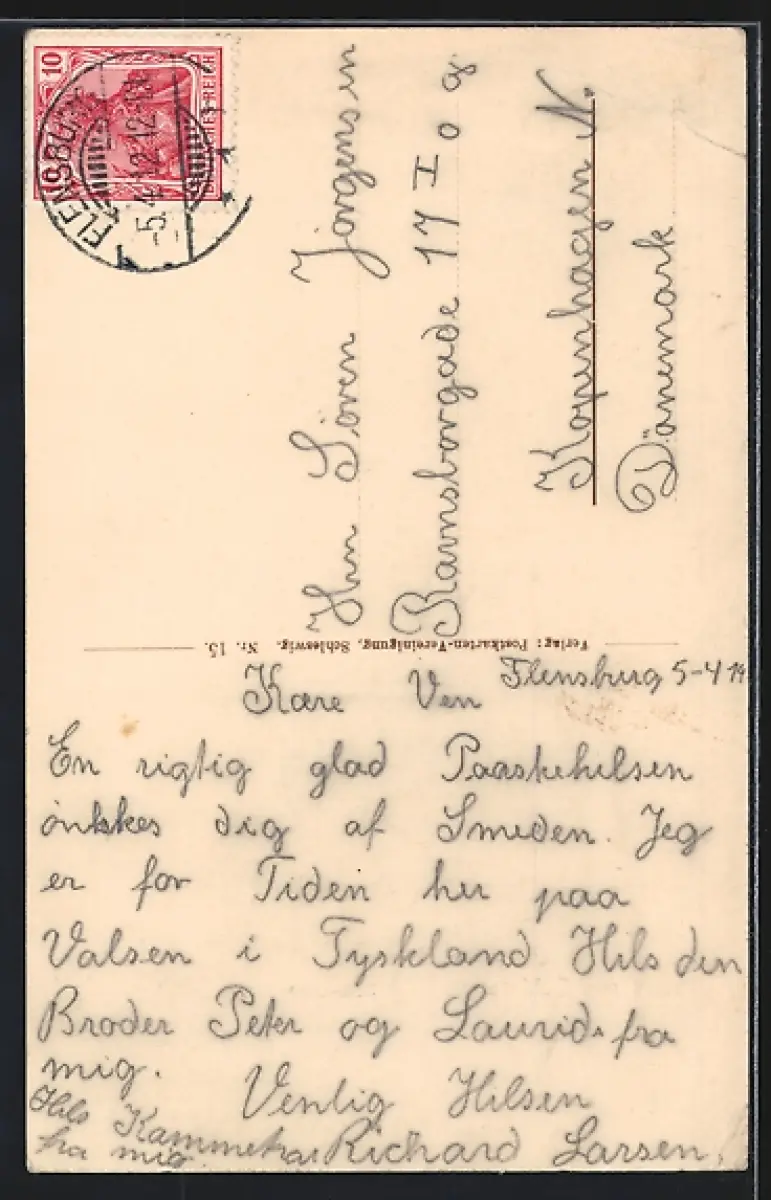 10
FLENSBURG
-5.4.12.12-1
REICH
Hrn Sören Jörgensen
Ravnsborgade 17 I o g
Kopenhagen N.
Dänemark
Verlag: Postkarten-Vereinigung, Schleswig. Nr. 15.
Flensburg 5-4 12
Kære Ven
En rigtig glad Paaskehilsen
önkkes dig af Smeden. Jeg
er for Tiden her paa
Valsen i Tyskland Hils din
Broder Peter og Laurids fra
mig.
Venlig Hilsen
Richard Larsen.
Hils
fra mig